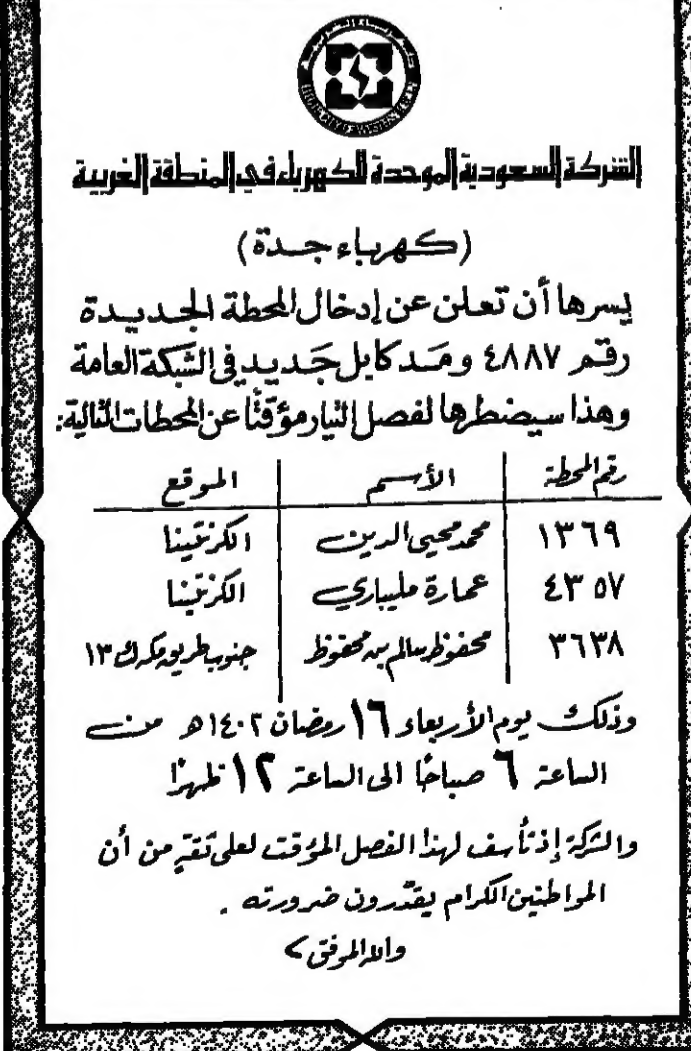 الشركة السعودية الموحدة للكهرباء في المنطقة الغربية
(كهرباء جدة)
يسرها أن تعلن عن إدخال المحطة الجديدة
رقم ٤٨٨٧ ومد كابل جَديد في الشبكة العامة
وهذا سيضطرها لفصل التيار مؤقتًا عن المحطات التالية:
رقم المحطة الأسم الموقع
١٣٦٩ محمد محيي الدين الكرنتينا
٤٣٥٧ عمارة مليباري الكرنتينا
٣٦٣٨ محفوظ سالم بن محفوظ جنوب طريق مكة ك ١٣
وذلك يوم الأربعاء ١٦ رمضان ١٤٠٢هـ من
الساعة ٦ صباحًا الى الساعة ١٢ ظهرًا
والشركة إذ تأسف لهذا الفصل المؤقت لعلى ثقة من أن
المواطنين الكرام يقدّرون ضرورته .
والله الموفق >